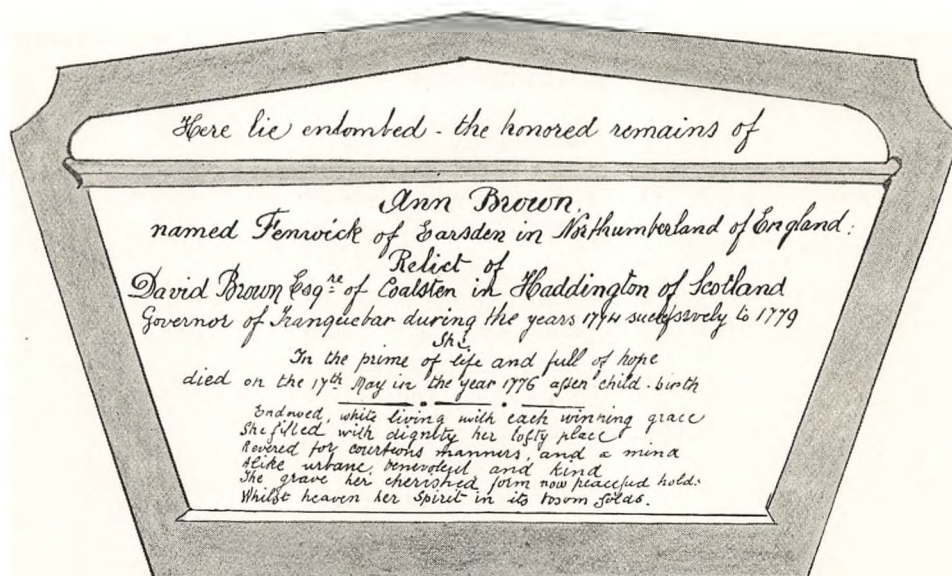 Here lie entombed - the honored remains of
Ann Brown,
named Fenwick of Earsden in Northumberland of England:
Relict of
David Brown Esqre of Coalsten in Haddington of Scotland
Governor of Tranquebar during the years 1774 successively to 1779
She
In the prime of life and full of hope
died on the 17th May in the year 1776 after child-birth
Endowed, while living with each winning grace
She filled with dignity her lofty place
Revered for courteous manners, and a mind
Alike urbane, benevolent and kind
The grave her cherished form now peaceful holds
Whilst heaven her Spirit in its bosom folds.